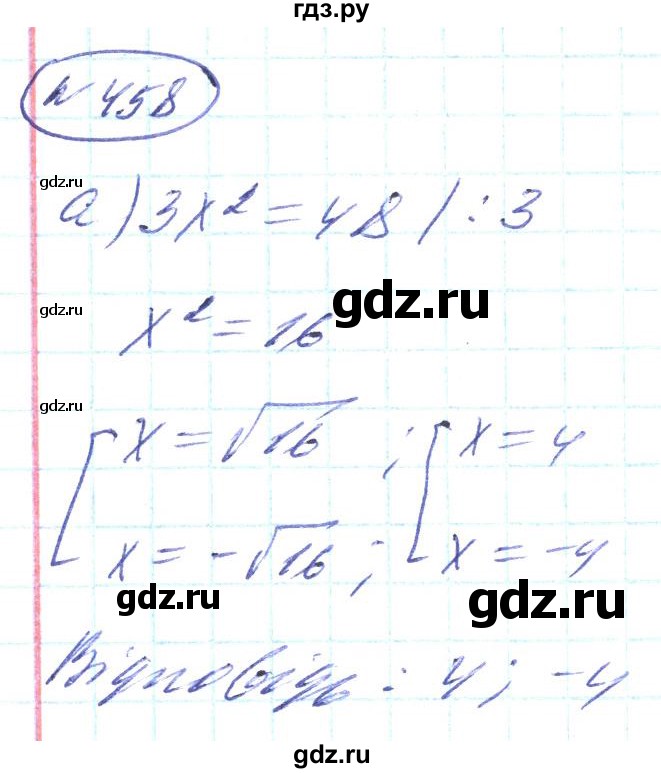 гдз.ру
№ 458
gdz.ru
а) 3x² = 48 / : 3
gdz.ru
x² = 16
gdz.ru
gdz.ru
[ x = √16 ; [ x = 4
x = -√16 ; x = -4
gdz.ru
gdz.ru
Відповідь : 4 ; -4
gdz.ru